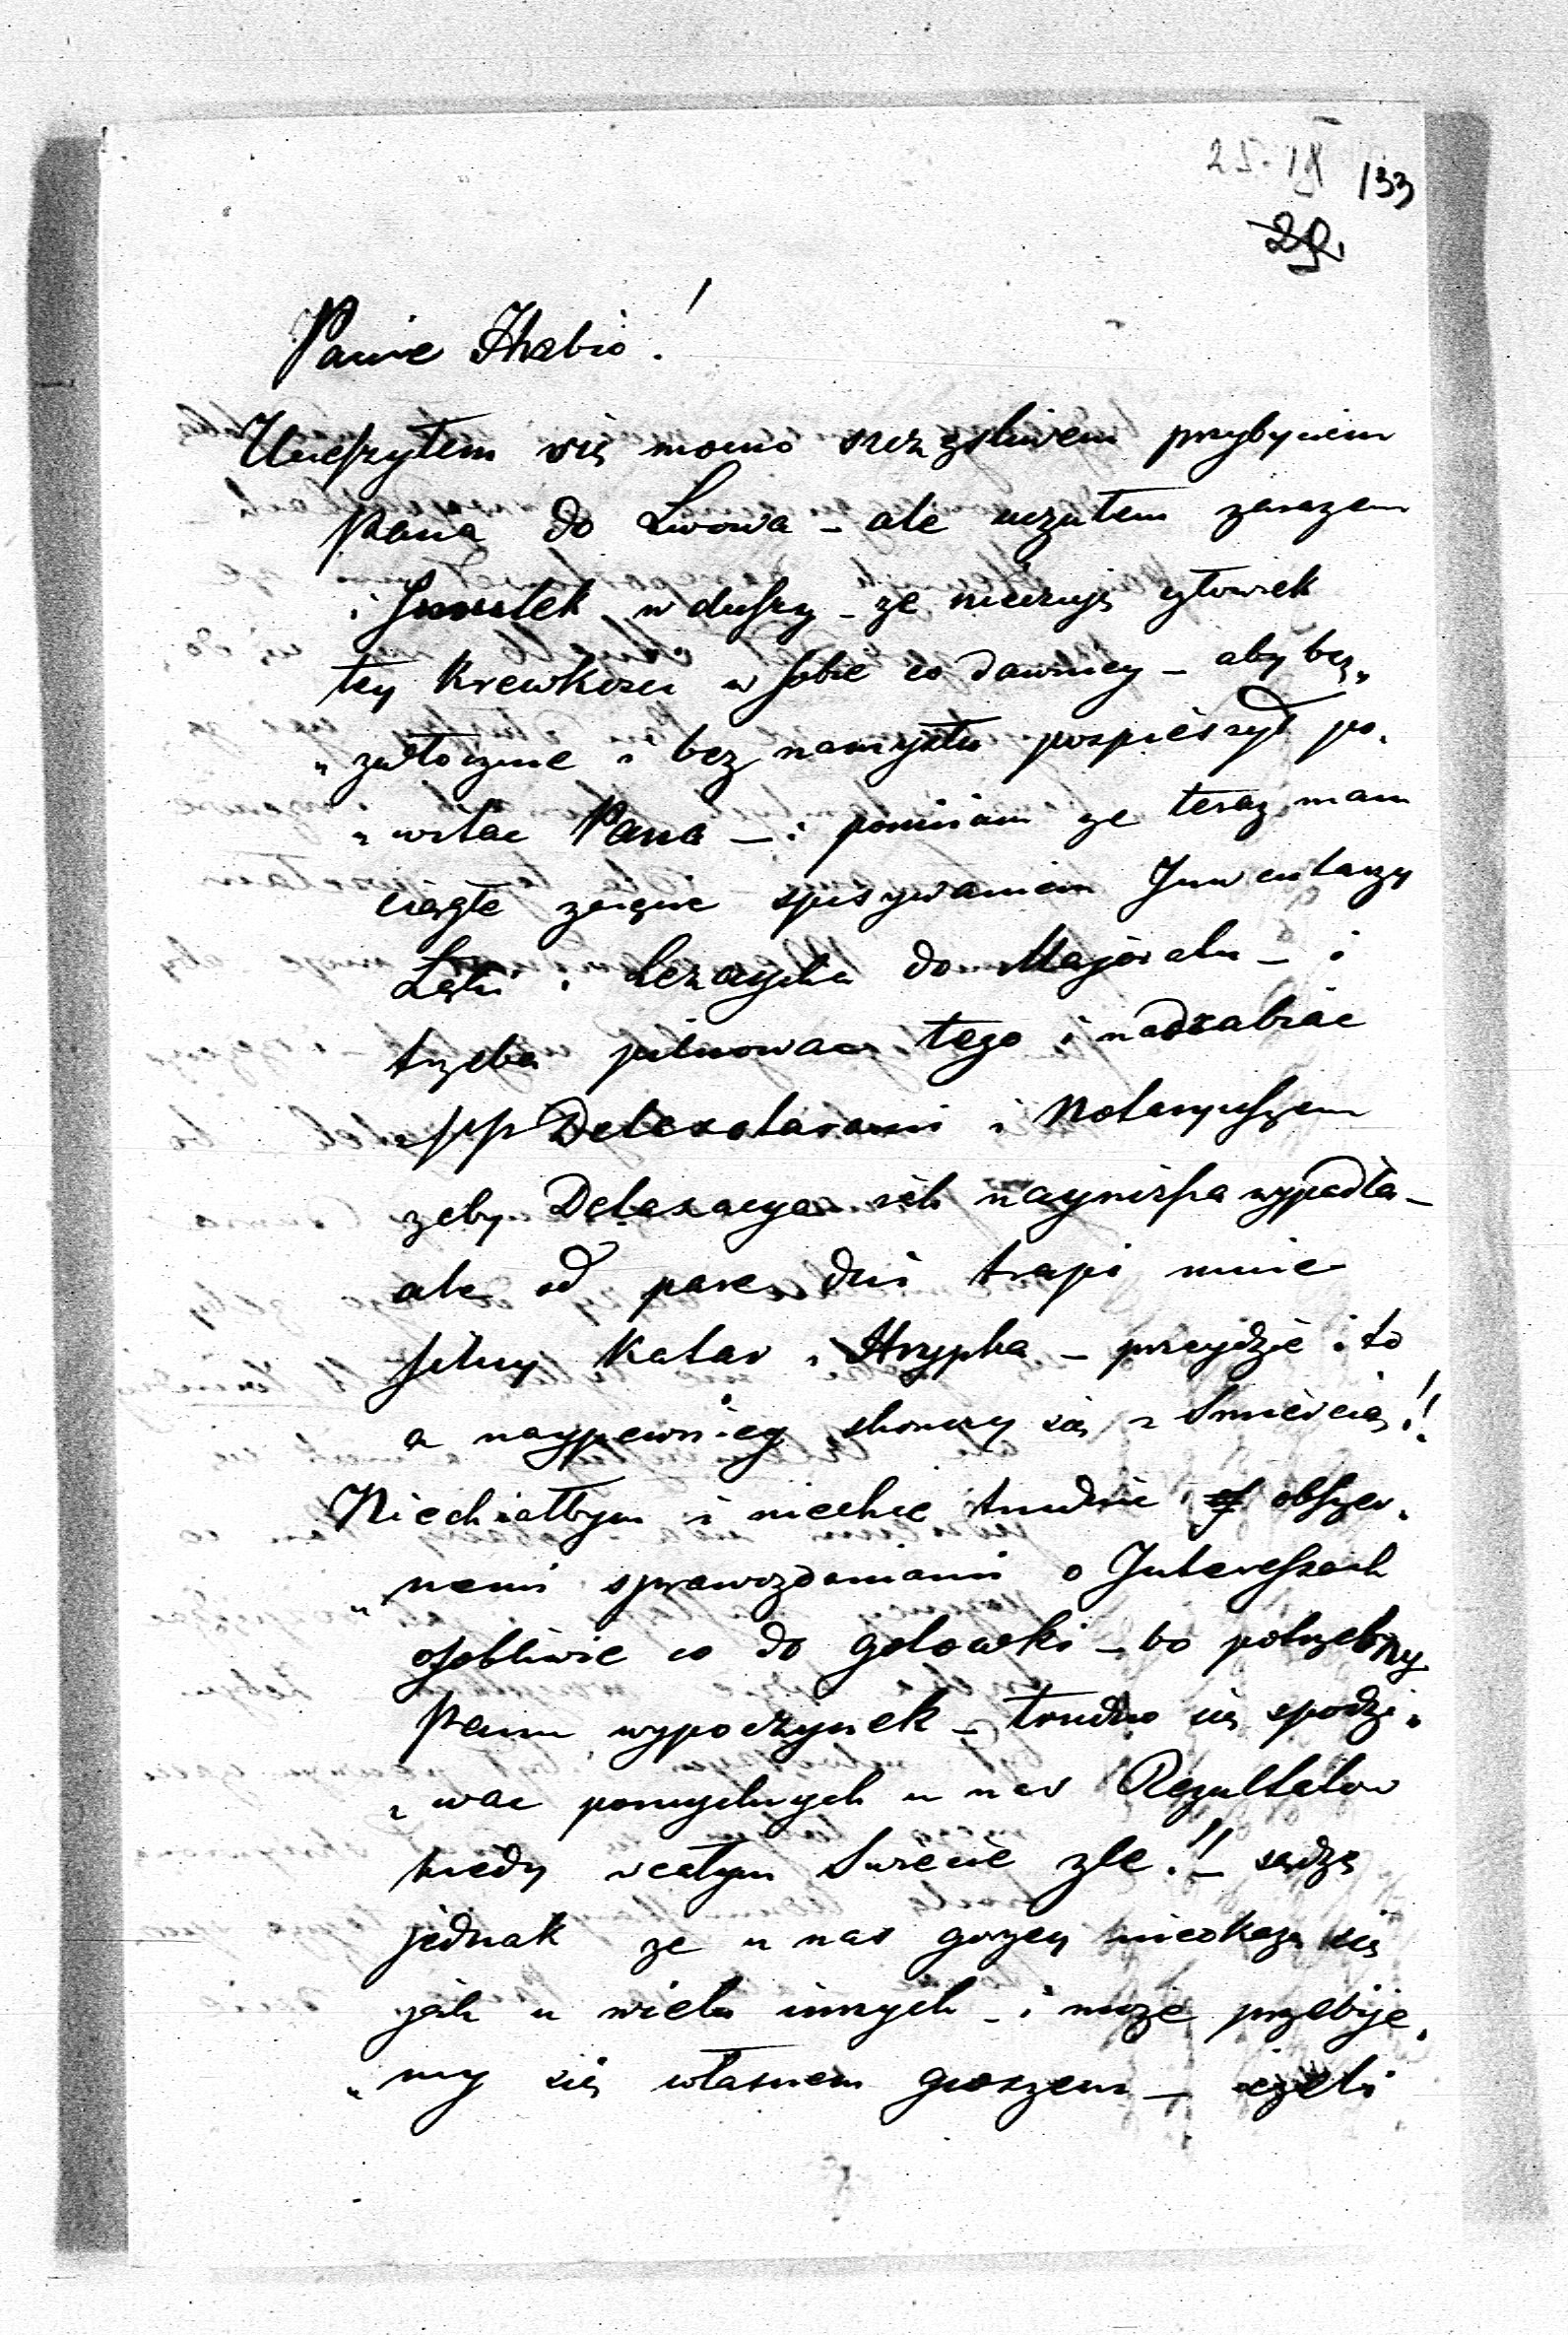 25. IX 133
29.
Panie Hrabio!
Ucieszyłem się mocno szczęsliwem przybyciem
Pana do Lwowa – ale uczułem zarazem
i Smutek w duszy – ze nieczuje człowiek
tey Krewkosci w sobie co dawniey – aby bez„
„zwłocznie i bez namysłu pospieszył po„
„witac Pana – i pomimo ze teraz mam
ciągłe zaięcie spisywaniem Inwentarzy
Łąki i do Majoratu – i
trzeba pilnowac tego i nadrabiac
z pp Detaxatorami i Notaryuszem
zeby Detaxacya ich naynizsza wypadła –
ale od paru dni trapi mnie
silny Katar i Hrypka – przeydzie i to
a naypewniey skonczy się z Smiercią!!
Niechciałbym i niechce trudnic obszer„
„nemi sprawozdaniami o Interessach
osobliwie co do gotowki – bo potrzebny
Panu wypoczynek – trudno się spodzi„
„wac pomyslnych u nas Rezultatow
kiedy w całym Swiecie zle!! – sądzę
jednak ze u nas gorzey nieokaze się
jak u wielu innych – i może przebije„
„my się własnem groszem – iezeli